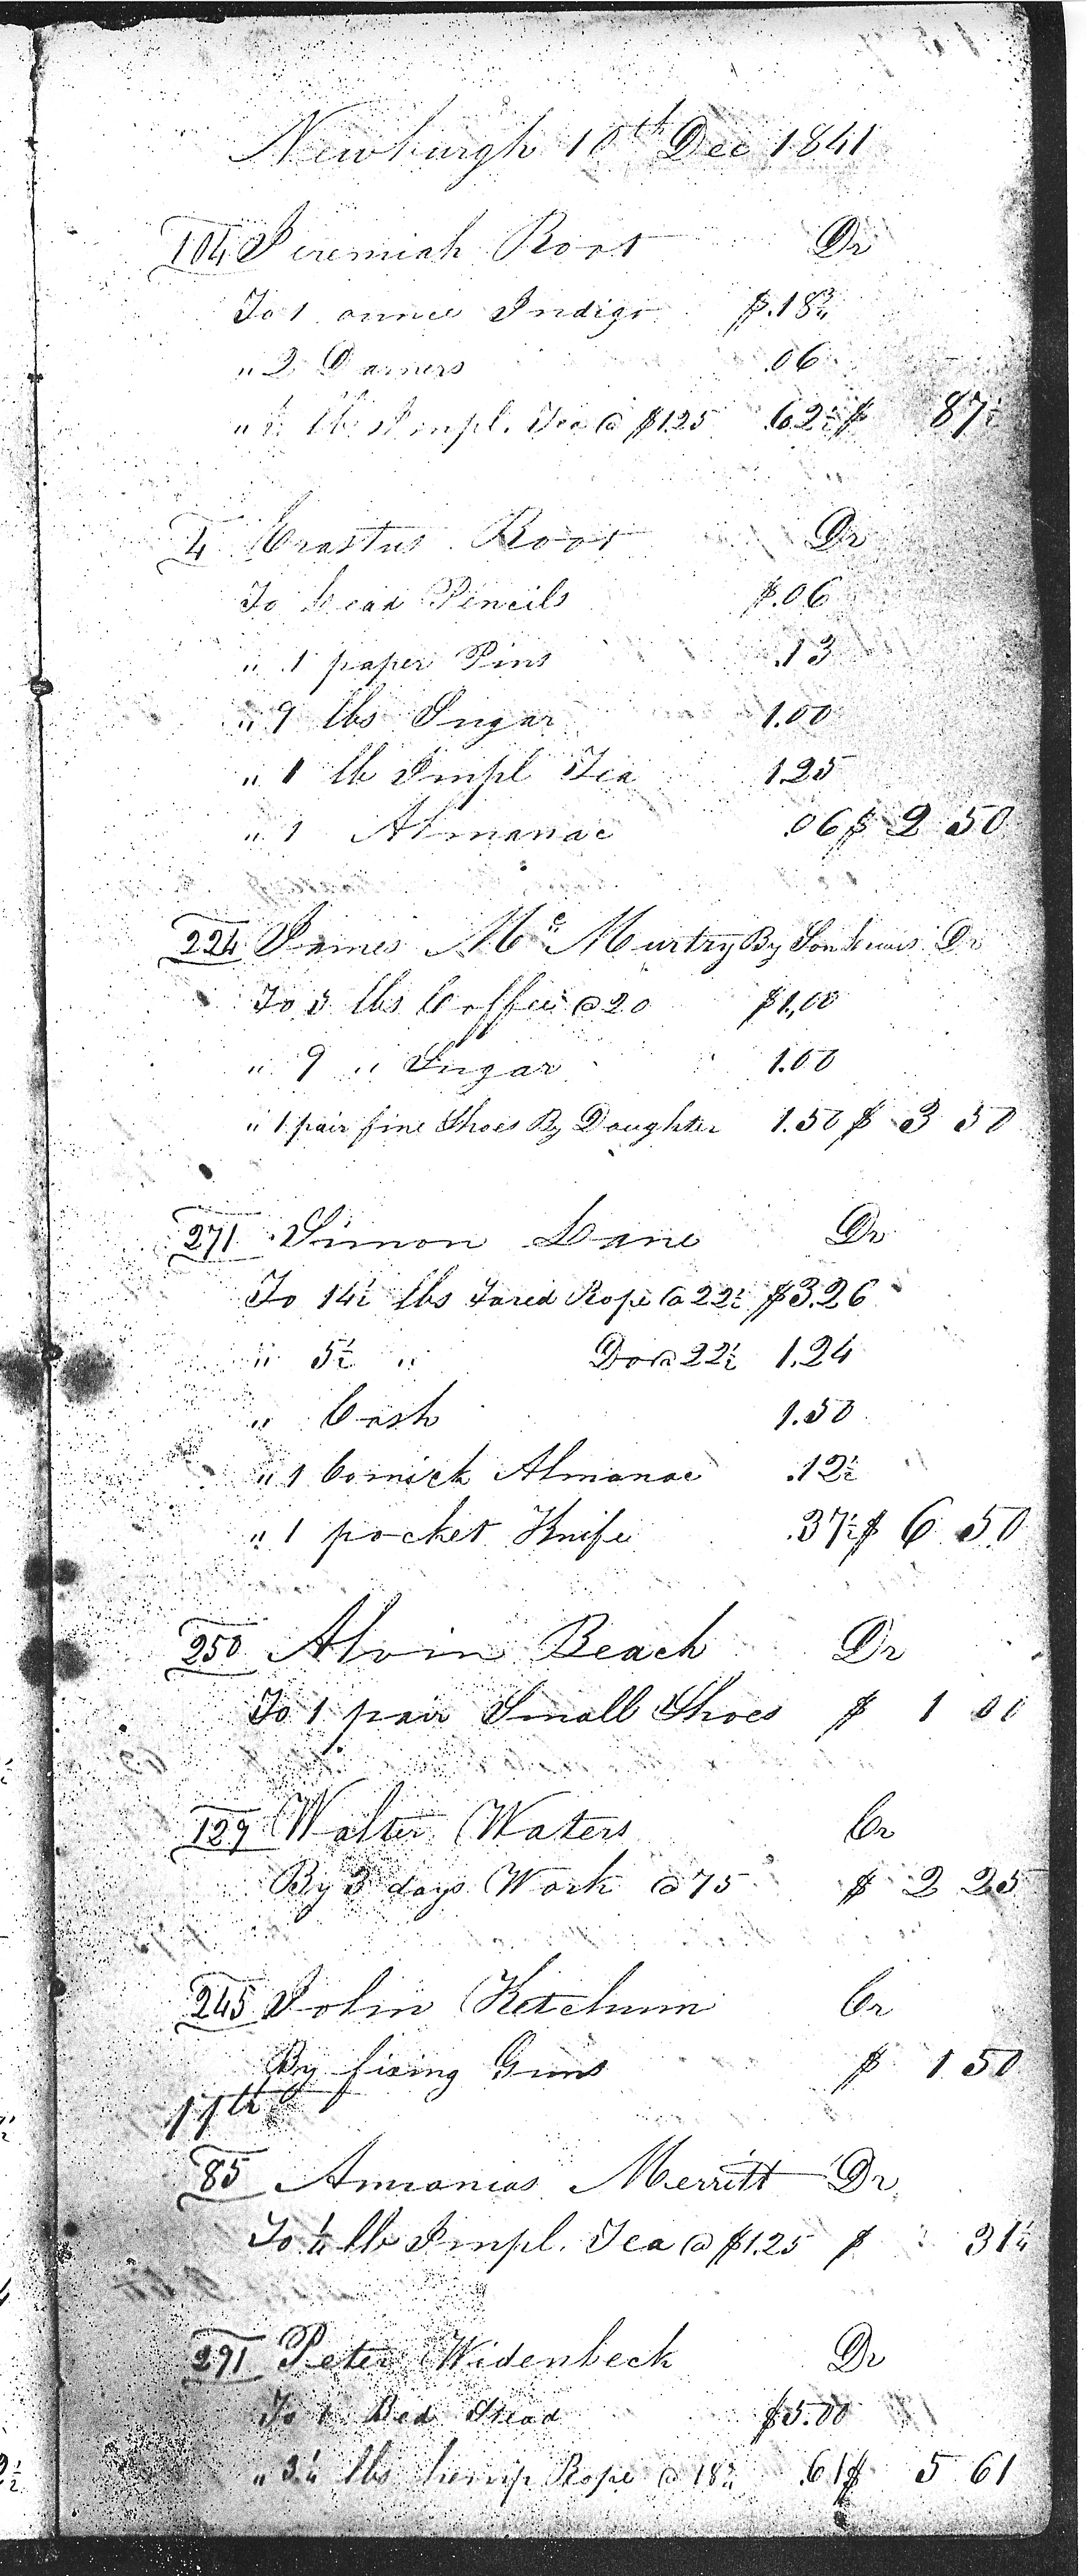 Newburgh 10th Dec 1841
104 Jeremiah Root Dr
To 1 ounce Indigo $.18¾
" 2 Darners .06
" ½ lb Impl. Tea @ $1.25 .62½ $ 87½
4 Erastus Root Dr
To Lead Pencils $.06
" 1 paper Pins .13
" 9 lbs Sugar 1.00
" 1 lb Impl Tea 1.25
" 1 Almanac .06 $ 2 50
224 James Mc Murtry By Son Dr
To 5 lbs Coffee @ 20 $1.00
" 9 " Sugar 1.00
" 1 pair fine Shoes By Daughter 1.50 $ 3 50
271 Simon Lane Dr
To 14½ lbs Tared Rope @ 22½ $3.26
" 5½ " Do @ 22½ 1.24
" Cash 1.50
" 1 Comick Almanac .12½
" 1 pocket Knife .37½ $ 6 50
250 Alvin Beach Dr
To 1 pair Small Shoes $ 1 00
129 Walter Waters Cr
By 3 days Work @ 75 $ 2 25
245 John Ketchum Cr
By fixing Guns $ 1 50
11th
85 Annanias Merritt Dr
To ¼ lb Impl. Tea @ $1.25 $ 31¼
291 Peter Widenbeck Dr
To 1 Bed Stead $5.00
" 3¼ lbs hemp Rope @ 18¾ .61 $ 5 61